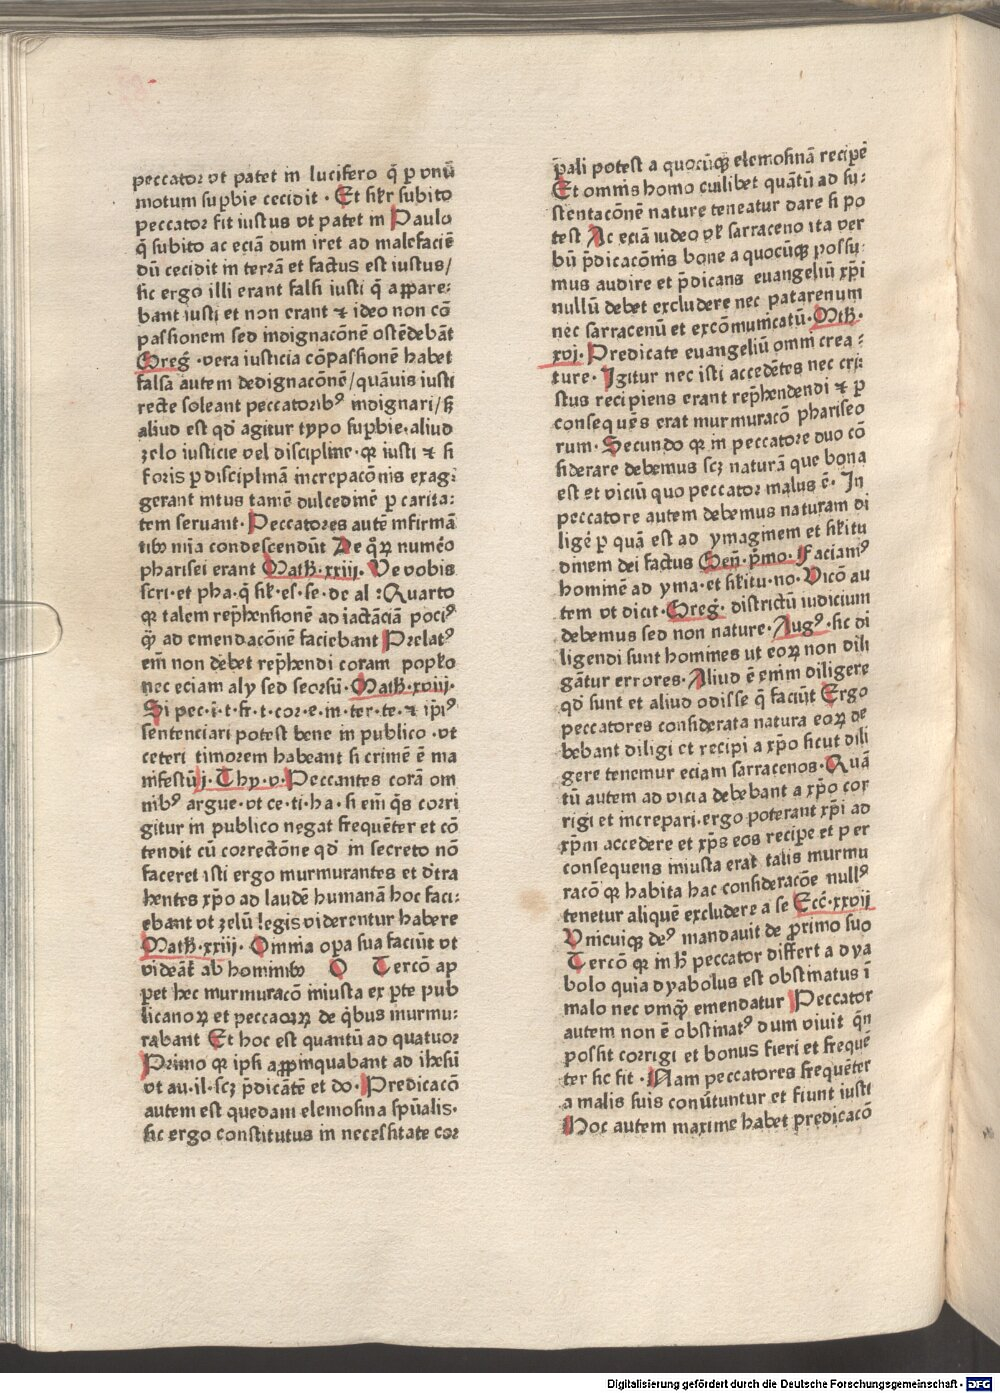 peccator vt patet in lucifero q̄ ꝑ vnū
motum suꝑbie cecidit · Et siłr subito
peccator fit iustus vt patet in Paulo
q̄ subito ac eciā dum iret ad malefaciē
dū cecidit in terrā et factus est iustus/
sic ergo illi erant falsi iusti q̄ aꝑpare:
bant iusti et non erant ⁊ ideo non cō
passionem sed indignacōnē ostēdebāt
Greg̅ ·vera iusticia cōpassionē habet
falsa autem dedignacōnē/quāuis iusti
recte soleant peccatoribꝰ indignari/ sʒ
aliud est qd̛ agitur typo suꝑbie·aliud
zelo iusticie vel discipline·qꝛ iusti ⁊ si
foris ꝑ disciplinā increpacōnis exag:
gerant intus tamē dulcedinē ꝑ carita:
tem seruant· Peccatores autē infirmā
tibꝫ condescendūt De qͦꝝ numēo
pharisei erant Math̅·xxiij· Ve vobis
scri·et pha·q̄ siḱ·es·se·de al :Quarto
qꝛ talem rep̄hensionē ad iactāciā pociꝰ
q̄ꝫ ad emendacōnē faciebant Prelatꝰ
em̄ non debet rep̄hendi coram popło
nec eciam aly sed seorsū· Math̅·xviij·
Si pec·ī·t·fr·t·cor·e·in·ter·te·⁊ ip̄iꝰ
sentenciari potest bene in publico ·vt
ceteri timorem habeant si crimē ē ma
nifestū j· Thy·v· Peccantes corā om
nibꝰ argue·vt ce·ti·ha· si em̄ q̄s corri
gitur in publico negat frequēter et cō
tendit cū correctōne qd̛ in secreto nō
faceret isti ergo murmurantes et d̛tra
hentes xp̄o ad laudē humanā hoc faci:
ebant vt zelū legis viderentur habere
Math̅·xxiij· Omnia oꝑa sua faciūt vt
videāt̄ ab hominibꝫ O Tercō ap
ꝑet hec murmuracō iniusta ex ꝑte pub
licanoꝝ et peccaoꝝ de q̄bus murmu:
rabant Et hoc est quantū ad quatuor
Primo qꝛ ipsi aꝓpinquabant ad ih̄esū
vt au·il·scʒ p̄dicātē et do· Predicacō
autem est quedam elemosina sp̄ualis·
sic ergo constitutus in necessitate cor
ꝑali potest a quocūqꝫ elemosinā reciꝑe
Et omnis homo cuilibet quātū ad su:
stentacōnē nature teneatur dare si po
test Ac eciā iudeo vł sarraceno ita ver
bū p̄dicacōnis bone a quocūqꝫ possu:
mus audire et p̄dicans euangeliū xp̄i
nullū debet excludere nec patarenum
nec sarracenū et excōmunicatū· Mth̅·
xvj· Predicate euangeliū omni crea:
ture· Igitur nec isti accedētes nec cri
stus recipiens erant rep̄hendendi ⁊ ꝑ
consequēs erat murmuracō phariseo
rum· Secundo qꝛ in peccatore duo cō
siderare debemus scʒ naturā que bona
est et viciū quo peccator malus ē· In
peccatore autem debemus naturam di
ligē ꝑ quā est ad ymaginem et siḱitu
dinem dei factus Gen̄· p̄mo· Faciamꝰ
hominē ad yma·et siḱitu·no· Vicō au
tem vt dicit· Greg̅· districtū iudicium
debemus sed non nature· Augꝰ·sic di
ligendi sunt homines ut eoꝝ non dili
gātur errores· Aliud ē enim diligere
qd̛ sunt et aliud odisse q̄ faciūt Ergo
peccatores considerata natura eoꝝ de
bebant diligi et recipi a xp̄o sicut dili
gere tenemur eciam sarracenos· Quā
tū autem ad vicia debebant a xp̄o cor
rigi et increpari·ergo poterant xp̄i ad
xp̄m accedere et xp̄s eos reciꝑe et per
consequens iniusta erat talis murmu
racō qꝛ habita hac consideracōe nullꝰ
tenetur aliquē excludere a se Ecc̄·xxvij
Vnicuiqꝫ deꝰ mandauit de ꝓximo suo
Tercō qꝛ in h̄ peccator differt a dya
bolo quia dyabolus est obstinatus ī
malo nec vmq̄ꝫ emendatur Peccator
autem non ē obstinatꝰ dum viuit qn̄
possit corrigi et bonus fieri et frequē
ter sic fit · Nam peccatores frequēter
a malis suis conūtuntur et fiunt iusti
Hoc autem maxime habet predicacō
Digitalisierung gefördert durch die Deutsche Forschungsgemeinschaft - DFG